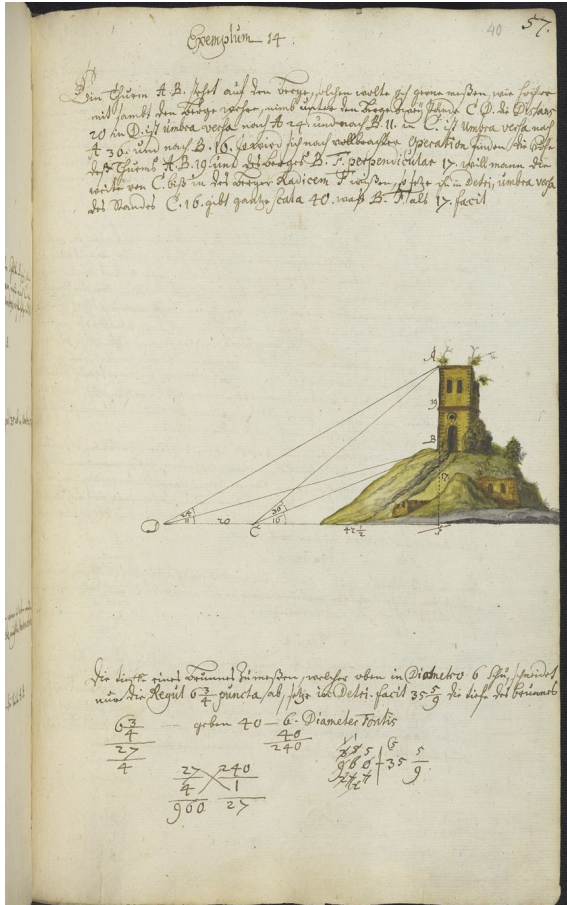 40
57.
Exemplum 14.
Ein Thurm A.B. stehet auf dem berge, solchen wolte ich gerne meßen, wie hoch er
mit sambt dem Berge wehre, nimb unter dem Berge zwei Stände C.D. die Distanz
20 in D. ist umbra versa nach A 24. und nach B. 11. in C. ist umbra versa nach
A 36. und nach B. 16. so werd ich nach vollbrachter Operation finden die Höhe
deß Thurms A.B. 19. und des berges B.F. perpendicular 17. will man die
weite von C. biß in des berges Radicem F wißen, so setze ich in Detri, umbra versa
des Standes C. 16. gibt gantze scala 40. waß B. F. als 17. facit
A
19
B
17
24
11
36
16
D
20
C
42 1/2
F
Die tieffe eines Brunnes zu meßen, welcher oben in Diametro 6 Schu, schneidet
nun die Regul 6 3/4 puncta, ab, setze in Detri. facit 35 5/9 die tiefe des brunnes
6 3/4 geben 40 — 6. Diameter fontis
27/4
40
240
27 240
4 1
960 27
960 35 5/9